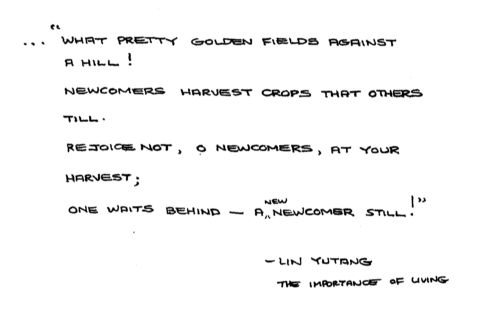 ... "WHAT PRETTY GOLDEN FIELDS AGAINST
A HILL!
NEWCOMERS HARVEST CROPS THAT OTHERS
TILL.
REJOICE NOT, O NEWCOMERS, AT YOUR
HARVEST;
ONE WAITS BEHIND — A NEW NEWCOMER STILL!"
— LIN YUTANG
THE IMPORTANCE OF LIVING